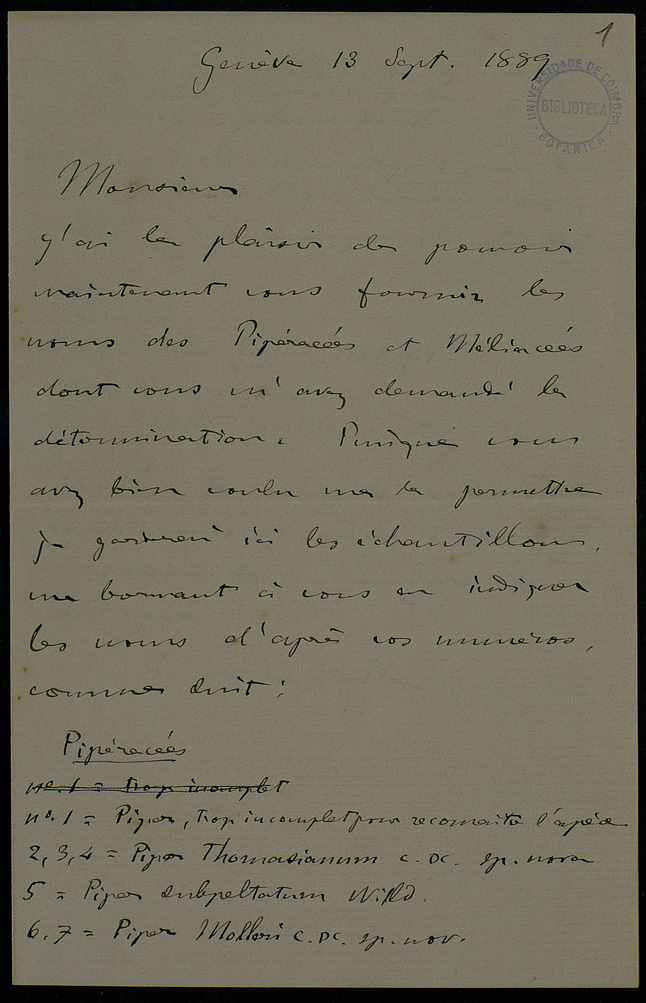 1
Genève 13 Sept. 1889
UNIVERSIDADE DE COIMBRA
BIBLIOTECA
BOTANICA
Monsieur
J'ai le plaisir de pouvoir
maintenant vous fournir les
noms des Pipéracées et Méliacées
dont vous m'avez demandé la
détermination. Puisque vous
avez bien voulu me le permettre
je garderai ici les échantillons,
me bornant à vous en indiquer
les noms d'après vos numéros,
comme suit:
Pipéracées
no. 1 = trop incomplet
no. 1 = Piper, trop incomplet pour reconnaitre l'espèce
2, 3, 4 = Piper Thomasianum C. DC. sp. nova
5 = Piper subpeltatum Willd.
6, 7 = Piper Molleri C. DC. sp. nov.